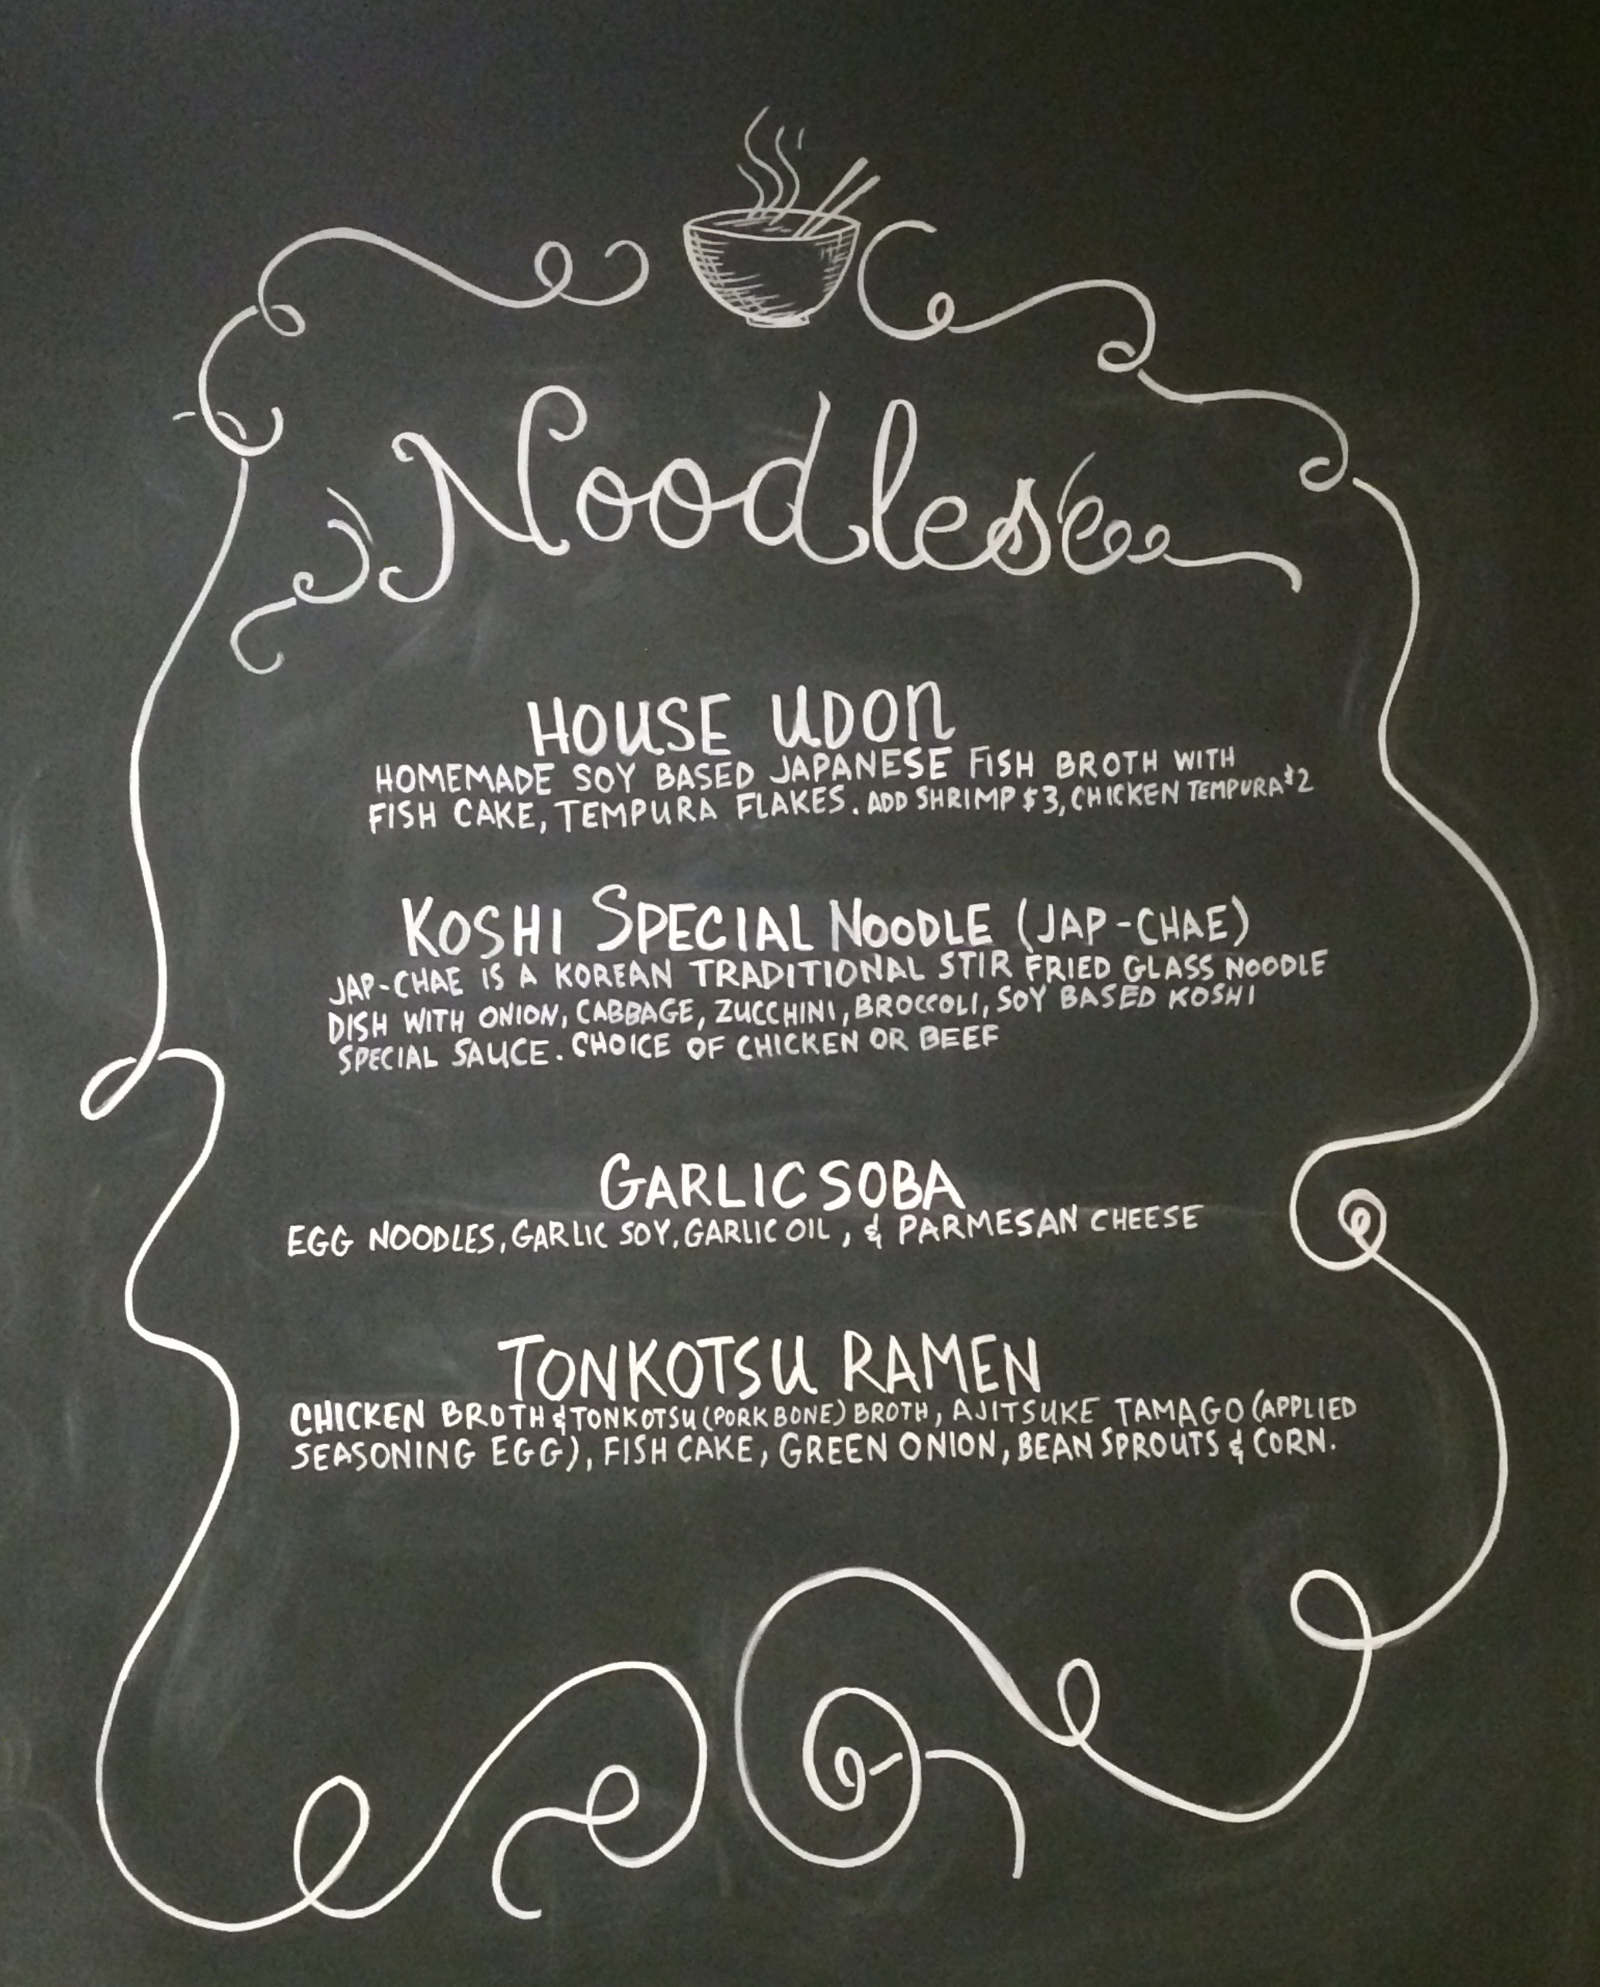 Noodles
HOUSE UDON
HOMEMADE SOY BASED JAPANESE FISH BROTH WITH
FISH CAKE, TEMPURA FLAKES. ADD SHRIMP $3, CHICKEN TEMPURA $2
KOSHI SPECIAL NOODLE (JAP-CHAE)
JAP-CHAE IS A KOREAN TRADITIONAL STIR FRIED GLASS NOODLE
DISH WITH ONION, CABBAGE, ZUCCHINI, BROCCOLI, SOY BASED KOSHI
SPECIAL SAUCE. CHOICE OF CHICKEN OR BEEF
GARLIC SOBA
EGG NOODLES, GARLIC SOY, GARLIC OIL, & PARMESAN CHEESE
TONKOTSU RAMEN
CHICKEN BROTH & TONKOTSU (PORK BONE) BROTH, AJITSUKE TAMAGO (APPLIED
SEASONING EGG), FISH CAKE, GREEN ONION, BEAN SPROUTS & CORN.